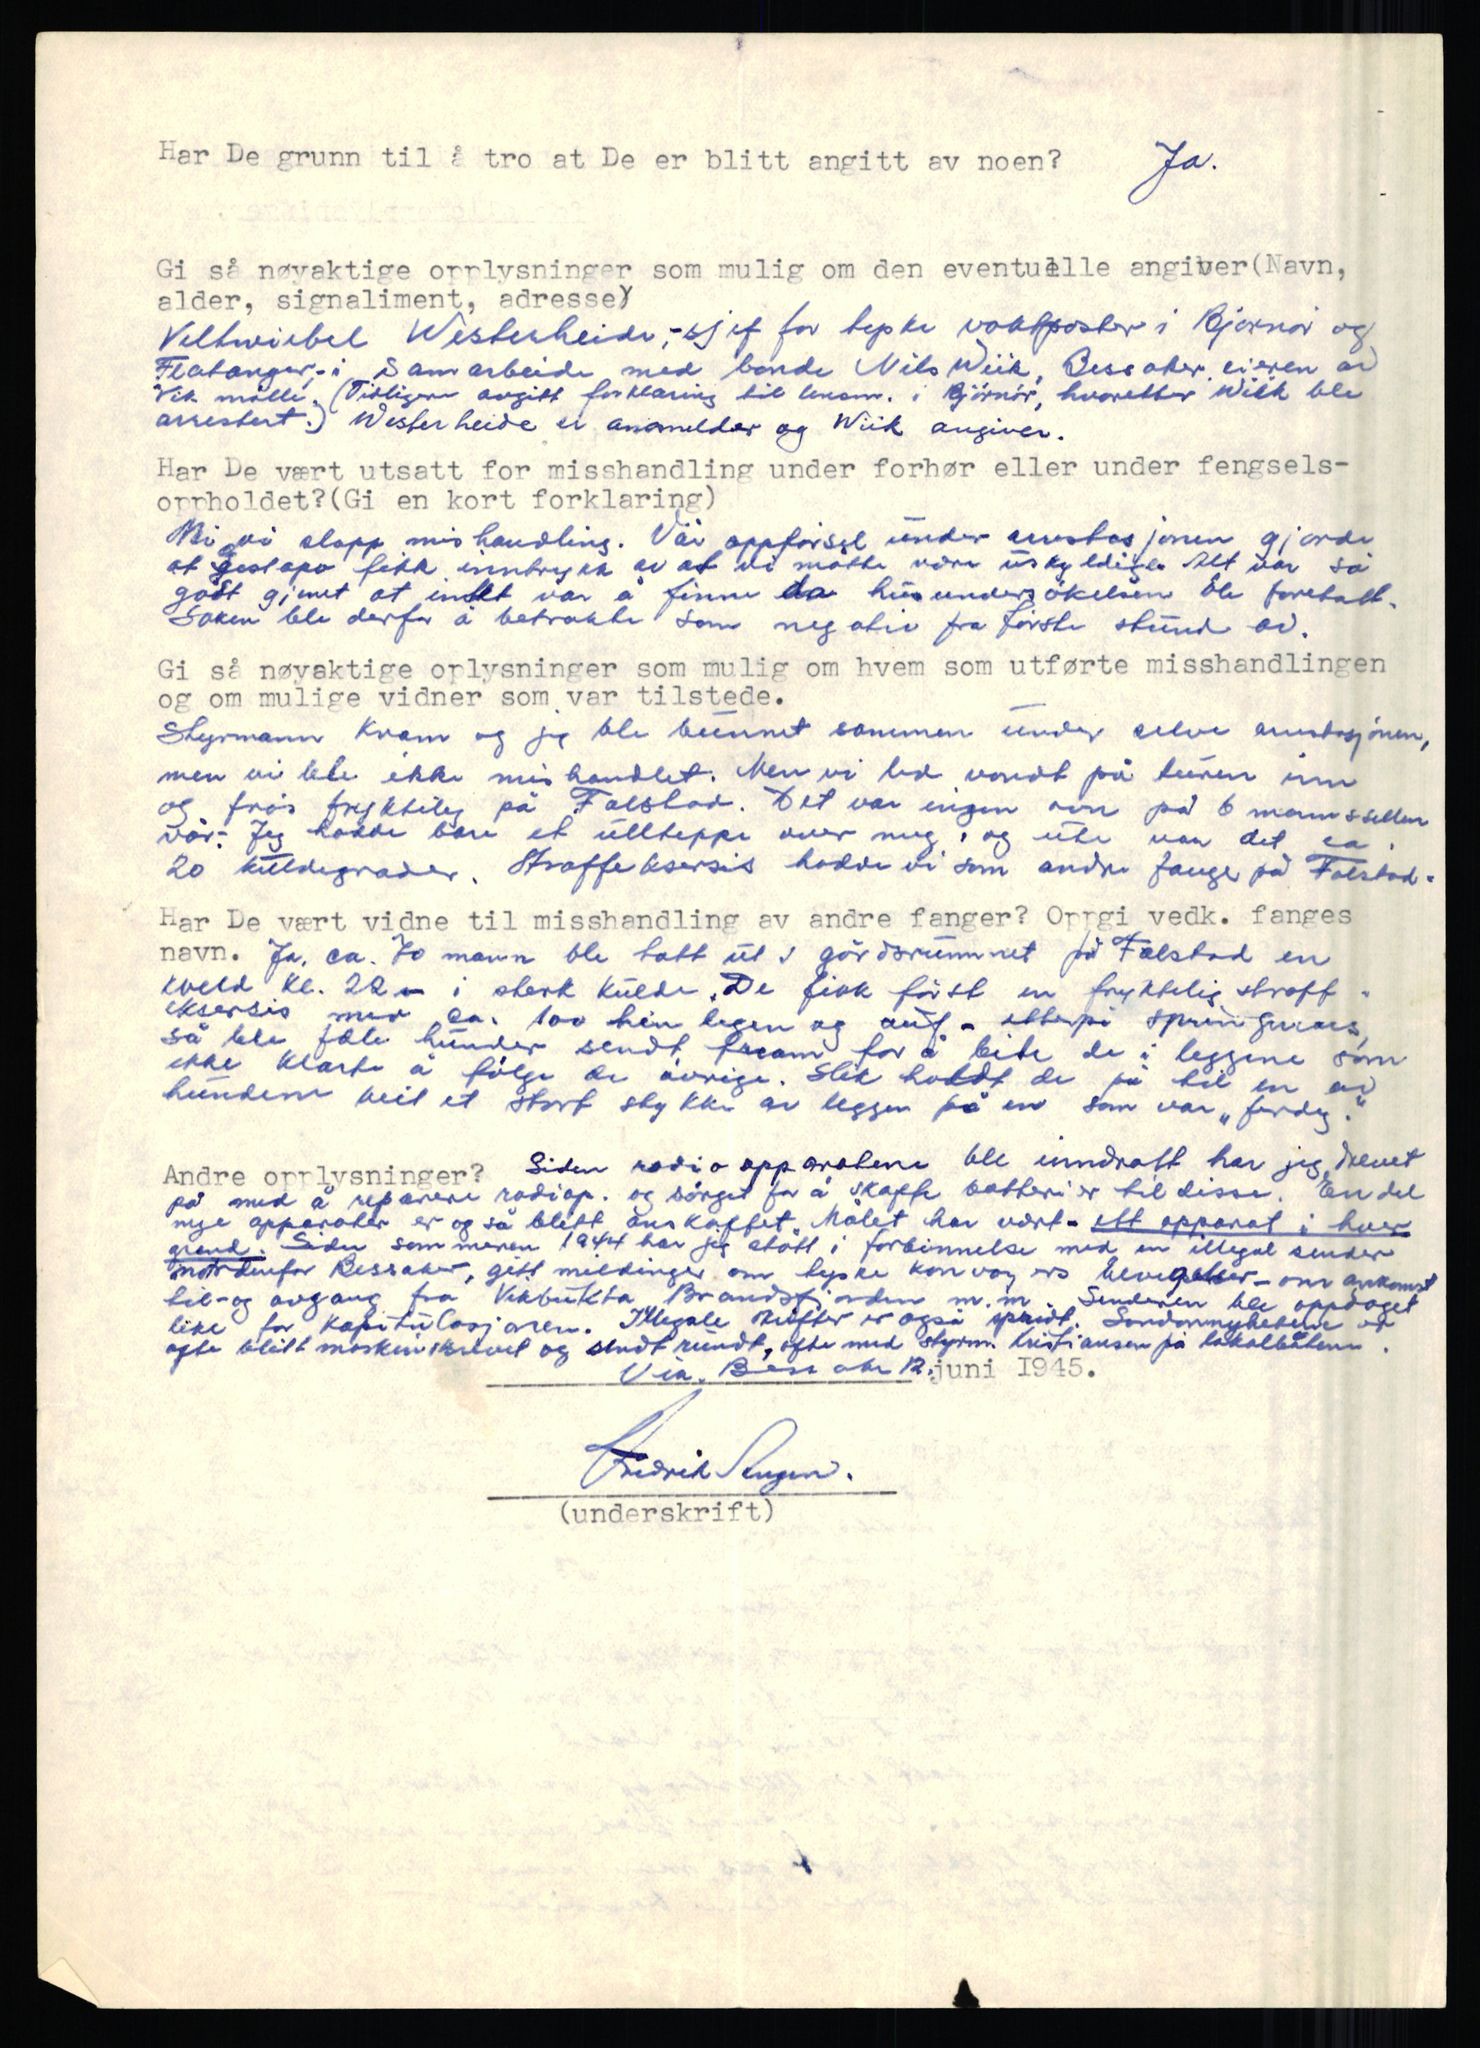 Har De grunn til å tro at De er blitt angitt av noen? Ja.
Gi så nøyaktige opplysninger som mulig om den eventuelle angiver(Navn,
alder, signaliment, adresse)
Veltwiebel Westerheide, - sjef for tyske vaktposter i Bjørnør og
Flatanger, - i samarbeide med bonde Nils Wiik, Bessaker, eieren av
Vik mölle. (Tidligere avgitt forklaring til lensm. i Björnör, hvoretter Wiik ble
arrestert.) Westerheide er anmelder og Wiik angiver.
Har De vært utsatt for misshandling under forhør eller under fengsels-
oppholdet?(Gi en kort forklaring)
Nei vi slapp mishandling. Vår oppförsel under arrestasjonen gjorde
at Gestapo fikk inntrykk av at vi måtte være uskyldige. Alt var så
godt gjemt at intet var å finne da husundersökelsen ble foretatt.
Saken ble derfor å betrakte som negativ fra förste stund av.
Gi så nøyaktige oplysninger som mulig om hvem som utførte misshandlingen
og om mulige vidner som var tilstede.
Styrmann Kvam og jeg ble bunnet sammen under selve arrestasjonen,
men vi ble ikke mishandlet. Men vi led vondt på turen inn
og frös fryktelig på Falstad. Det var ingen ovn på 6 mannscellen
vår. Jeg hadde bare et ullteppe over meg, og ute var det ca.
20 kuldegrader. Straffeksersis hadde vi som andre fanger på Falstad.
Har De vært vidne til misshandling av andre fanger? Oppgi vedk. fanges
navn. Ja, ca. 70 mann ble tatt ut i gårdsrummet på Falstad en
kveld kl. 22 - i sterk kulde. De fikk först en fryktelig straff-
eksersis med ca. 100 hin legen og auf - etterpå springmars,
så ble fæle hunder sendt fram for å bite de i leggene som
ikke klarte å fölge de övrige. Slik holdt de på til en av
hundene beit et stort stykke av leggen på en som var "ferdig".
Andre opplysninger? Siden radioapparatene ble inndratt har jeg drevet
på med å reparere radioap. og sörget for å skaffe batterier til disse. En del
nye apparater er også blitt anskaffet. Målet har vært - ett apparat i hver
grend. Siden sommeren 1944 har jeg stått i forbinnelse med en illegal sender
nordenfor Bessaker, gitt meldinger om tyske konvoyers bevegelser - om ankomst
til - og avgang fra Vikbukta Brandsfjorden m.m. Senderen ble oppdaget
like før kapitulasjonen. Illegale skrifter er også spridt. Londonnyhetene er
ofte blitt maskinskrevet og sendt rundt, ofte med styrm. Kristiansen på lokalbåtene.
Vik. Bessaker 12. juni 1945.
Fredrik
(underskrift)